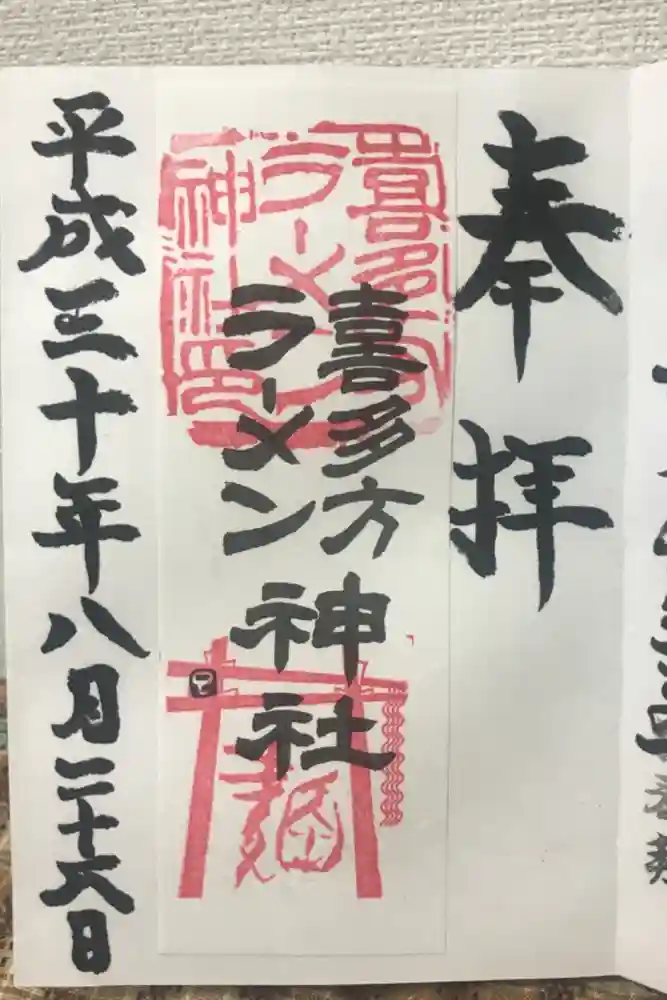 奉拝
喜多方
ラーメン
神社
喜多方
ラーメン
神社印
麺
平成三十年八月二十六日